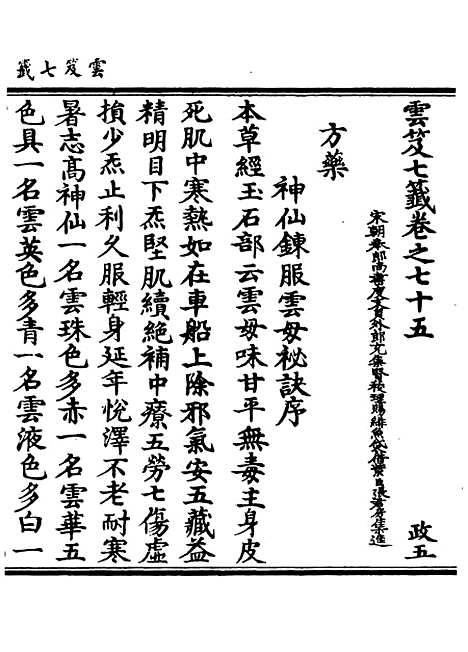 雲笈七籤
雲笈七籤卷之七十五 政五
宋朝奉郎尚書度支員外郎充集賢校理賜緋魚袋借紫臣張君房集進
方藥
神仙鍊服雲母祕訣序
本草經玉石部云雲母味甘平無毒主身皮
死肌中寒熱如在車船上除邪氣安五藏益
精明目下炁堅肌續絕補中療五勞七傷虛
損少炁止利久服輕身延年悅澤不老耐寒
暑志高神仙一名雲珠色多赤一名雲華五
色具一名雲英色多青一名雲液色多白一